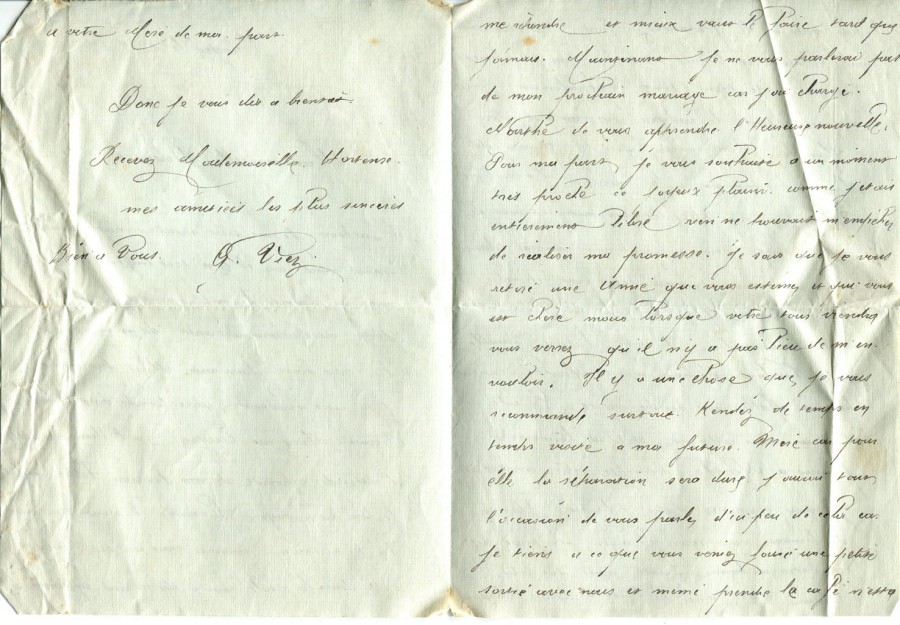 me répondre et mieux vaut le faire tard que
jamais. Maintenant je ne vous parlerai pas
de mon prochain mariage car j'ai chargé
Marthe de vous apprendre l'Heureuse nouvelle.
Pour ma part, je vous souhaite a un moment
très proche ce joyeux plaisir. comme j'etais
entièrement libre rien ne trouvait m'empêcher
de réaliser ma promesse. Je sais que je vous
retire une Amie que vous estimez et qui vous
est chère mais lorsque votre tour viendra
vous verrez qu'il n'y a pas lieu de m'en
vouloir. Il y a une chose que je vous
recommande surtout Rendez de temps en
temps visite a ma future Mère car pour
elle la séparation sera dure j'aurai tout
l'occasion de vous parler d'ici peu de cela car
je tiens a ce que vous veniez faire une petite
sortie avec nous et même prendre le café n'est a
a votre Mere de ma part.
Donc je vous dis a bientot.
Recevez Mademoiselle Hortense
mes amitiés les plus sincères
Bien a Vous